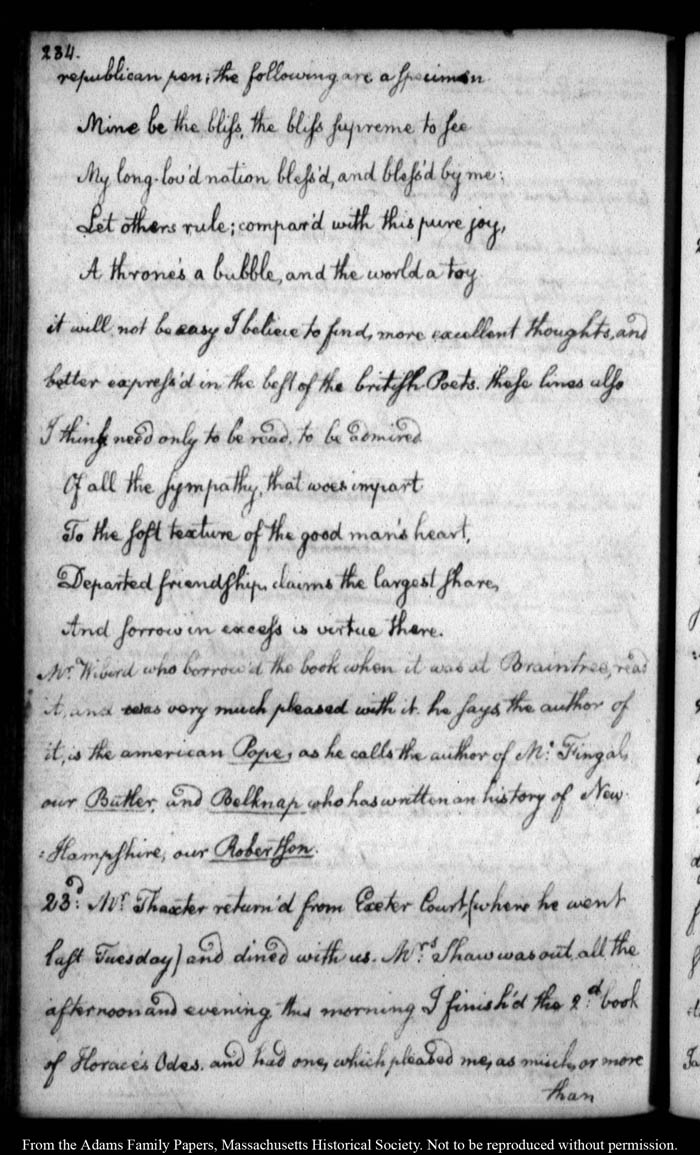 234.
republican pen; the following are a specimen
Mine be the bliſs, the bliſs ſupreme to ſee
My long-lov'd nation bleſs'd, and bleſs'd by me:
Let others rule; compar'd with this pure joy,
A throne's a bubble, and the world a toy.
it will not be easy I believe to find, more excellent thoughts, and
better expreſs'd in the beſt of the britiſh Poets. theſe lines alſo
I think need only to be read, to be admired
Of all the ſympathy, that woes impart
To the ſoft texture of the good man's heart,
Departed friendſhip, claims the largest ſhare,
And ſorrow in exceſs is virtue there.
Mr. Wiberd who borrow'd the book when it was at Braintree, read
it, and was very much pleased with it. he ſays, the author of
it, is the american Pope, as he calls the author of Mc. Fingal,
our Butler, and Belknap who has written an history of New-
:Hampſhire, our Robertſon.
23d: Mr. Thaxter return'd from Exeter Court, (where he went
laſt Tuesday) and dined with us. Mrs. Shaw was out, all the
afternoon and evening. this morning I finiſh'd the 2d. book
of Horace's Odes. and had one, which pleased me, as much, or more
than
From the Adams Family Papers, Massachusetts Historical Society. Not to be reproduced without permission.